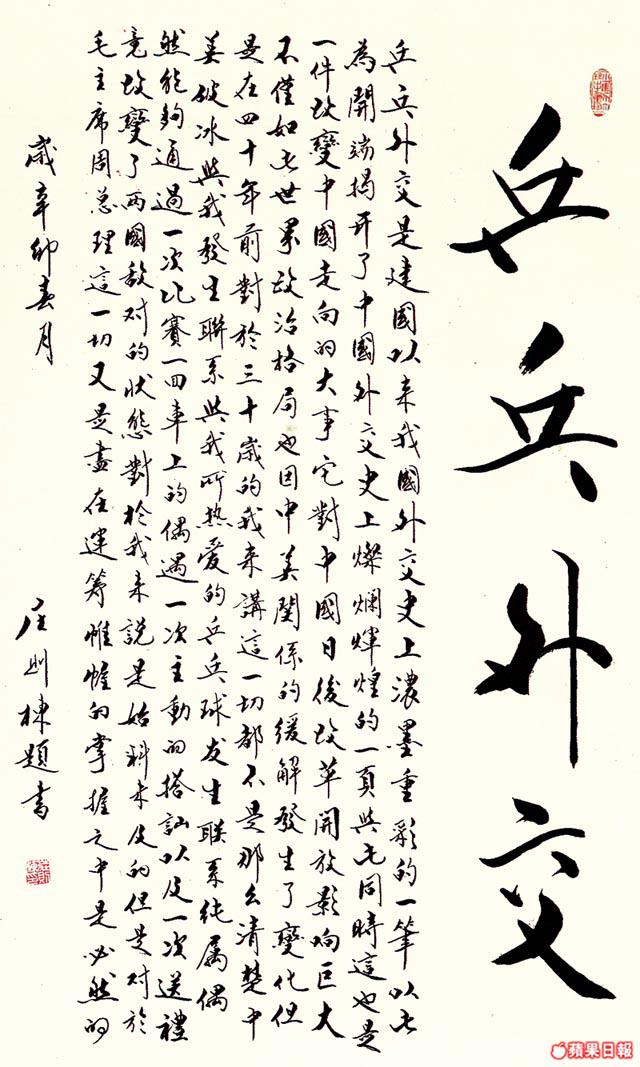 乒乓外交
乒乓外交是建國以来我國外交史上濃墨重彩的一筆以此
為開端揭开了中國外交史上燦爛輝煌的一頁與此同時這也是
一件改變中國走向的大事它對中國日後改革開放影响巨大
不僅如此世界政治格局也因中美関係的缓解發生了變化但
是在四十年前對於三十歲的我来講這一切都不是那么清楚中
美破冰與我發生聯系與我所热爱的乒乓球发生联系纯属偶
然能夠通過一次比賽一回車上的偶遇一次主動的搭訕以及一次送禮
竟改變了两國敌对的狀態對於我来説是始料未及的但是对於
毛主席周总理這一切又是盡在運筹帷幄的掌握之中是必然的
歲辛卯春月
庄则棟題书
蘋果日報